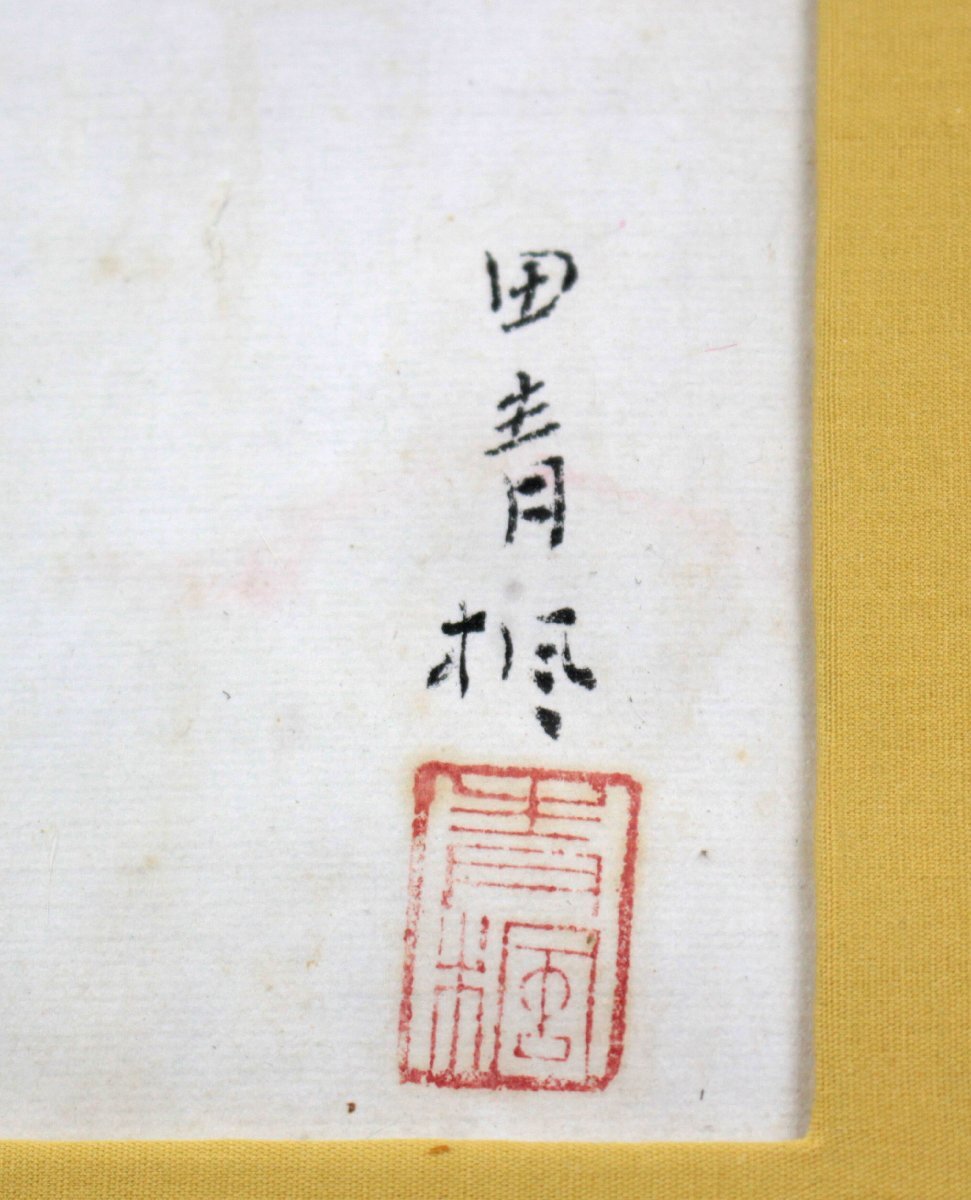 田青楓
青楓